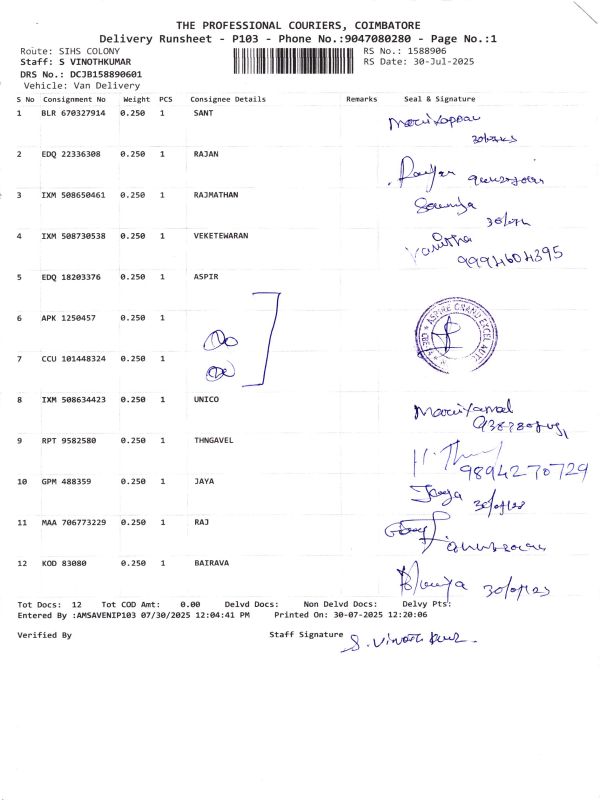 THE PROFESSIONAL COURIERS, COIMBATORE
Delivery Runsheet - P103 - Phone No.:9047080280 - Page No.:1
Route: SIHS COLONY
RS No.: 1588906
Staff: S VINOTHKUMAR
RS Date: 30-Jul-2025
DRS No.: DCJB158890601
Vehicle: Van Delivery
S No Consignment No Weight PCS Consignee Details Remarks Seal & Signature
1 BLR 670327914 0.250 1 SANT
2 EDQ 22336308 0.250 1 RAJAN
3 IXM 508650461 0.250 1 RAJMATHAN
Sowmya
4 IXM 508730538 0.250 1 VEKETEWARAN
Vanitha
9994604395
5 EDQ 18203376 0.250 1 ASPIR
6 APK 1250457 0.250 1
7 CCU 101448324 0.250 1
8 IXM 508634423 0.250 1 UNICO
9 RPT 9582580 0.250 1 THNGAVEL
9894270729
10 GPM 488359 0.250 1 JAYA
Jaya
11 MAA 706773229 0.250 1 RAJ
12 KOD 83080 0.250 1 BAIRAVA
Tot Docs: 12 Tot COD Amt: 0.00 Delvd Docs: Non Delvd Docs: Delvy Pts:
Entered By :AMSAVENIP103 07/30/2025 12:04:41 PM Printed On: 30-07-2025 12:20:06
Verified By Staff Signature